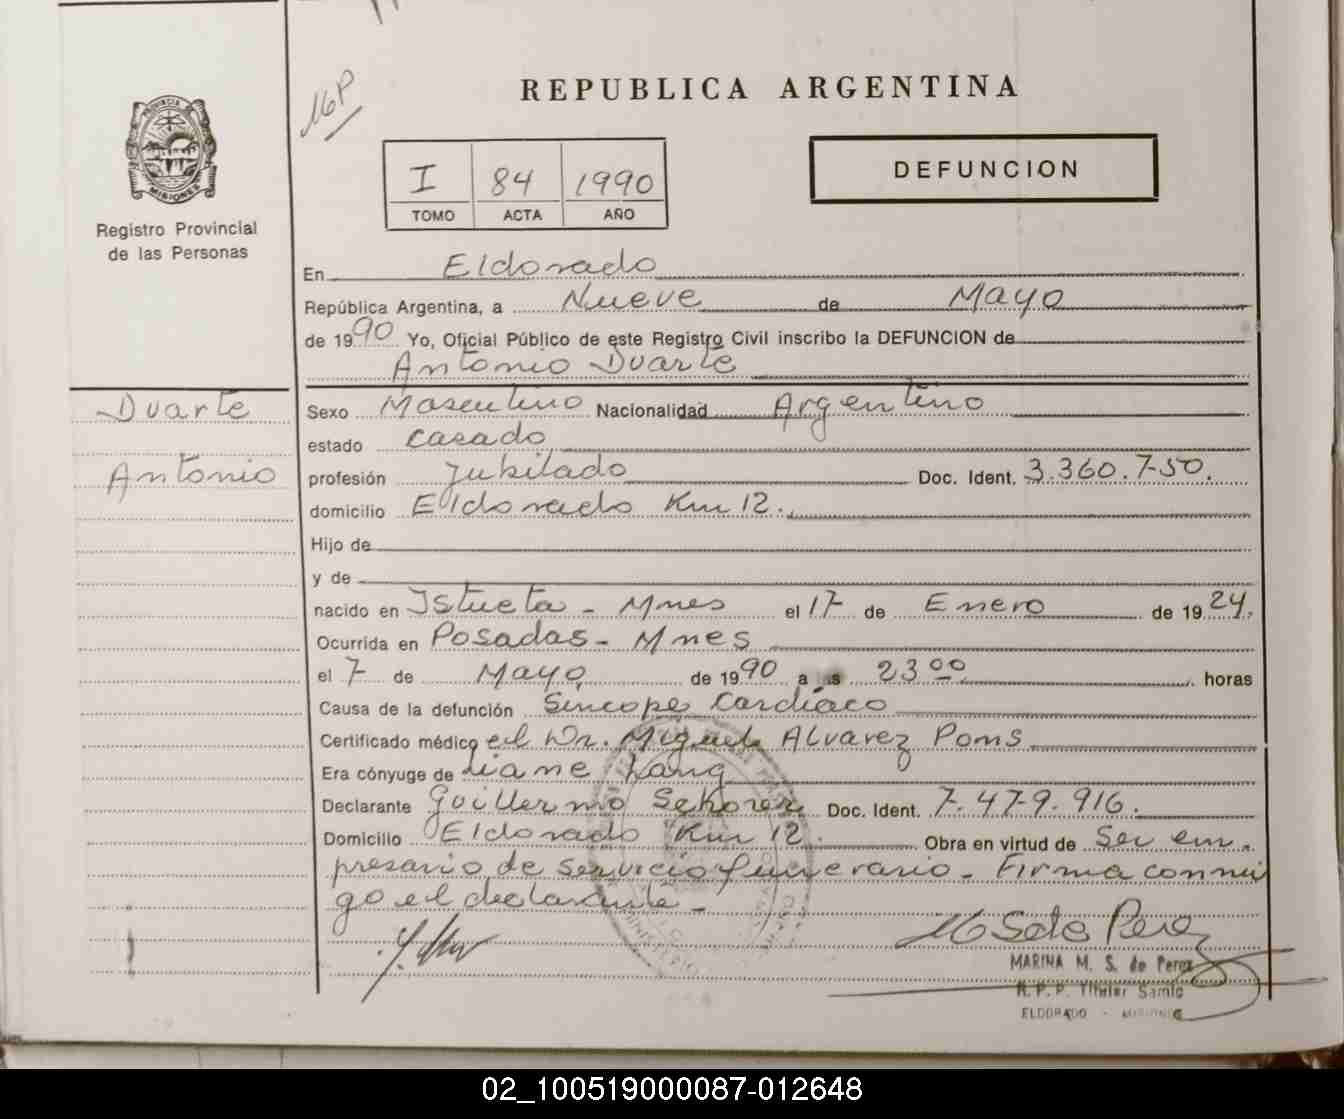 16P
REPUBLICA ARGENTINA
PROVINCIA DE MISIONES
I 84 1990
TOMO ACTA AÑO
DEFUNCION
Registro Provincial
de las Personas
En Eldorado
República Argentina, a Nueve de Mayo
de 1990 Yo, Oficial Público de este Registro Civil inscribo la DEFUNCION de
Antonio Duarte
Duarte
Antonio
Sexo Masculino Nacionalidad Argentino
estado casado
profesión Jubilado Doc. Ident. 3.360.750.
domicilio Eldorado Km 12.
Hijo de
y de
nacido en Istueta - Mnes el 17 de Enero de 1924.
Ocurrida en Posadas - Mnes
el 7 de Mayo de 1990 a las 23 00 horas
Causa de la defunción Sincope Cardíaco
Certificado médico el Dr. Miguel Alvarez Poms
Era cónyuge de Liane Lang
Declarante Guillermo Doc. Ident. 7.479.916.
Domicilio Eldorado Km 12. Obra en virtud de ser em-
presario de servicio funerario - Firma conmi
go el declarante -
M Soto Perez
MARINA M. S. de Perez
R.P.P. Titular
ELDORADO - MISIONES
02_100519000087-012648